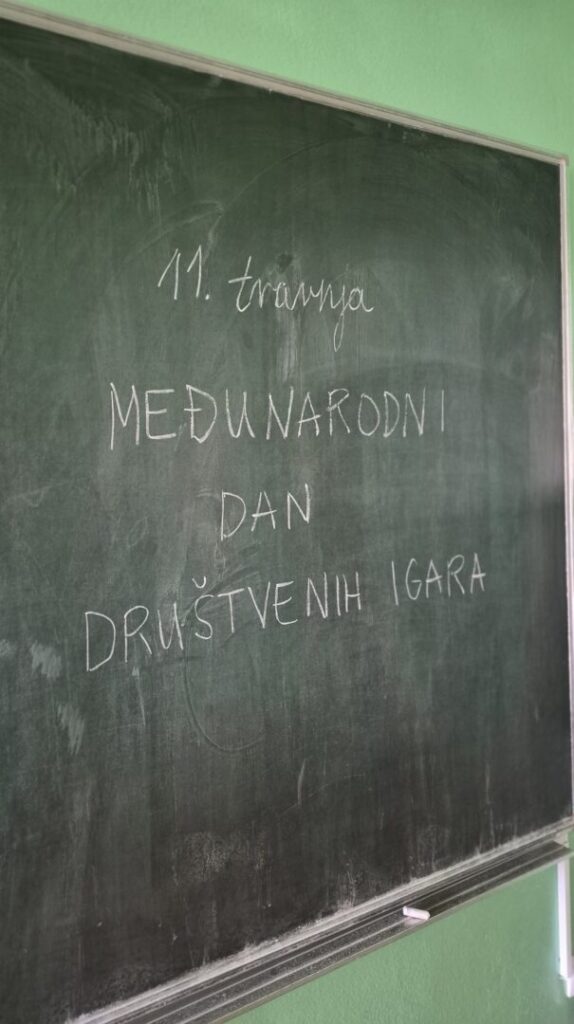 11. travnja
MEĐUNARODNI
DAN
DRUŠTVENIH IGARA